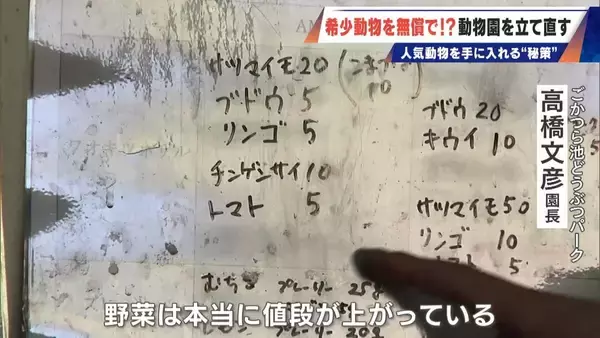 希少動物を無償で!?動物園を立て直す
人気動物を手に入れる“秘策”
ごかつら池どうぶつパーク
高橋文彦 園長
サツマイモ 20
10
ブドウ 5
リンゴ 5
チンゲンサイ 10
トマト 5
ブドウ 20
キウイ 10
サツマイモ 50
リンゴ 10
5
プレーリー 25g
プレーリー 20g
野菜は本当に値段が上がっている